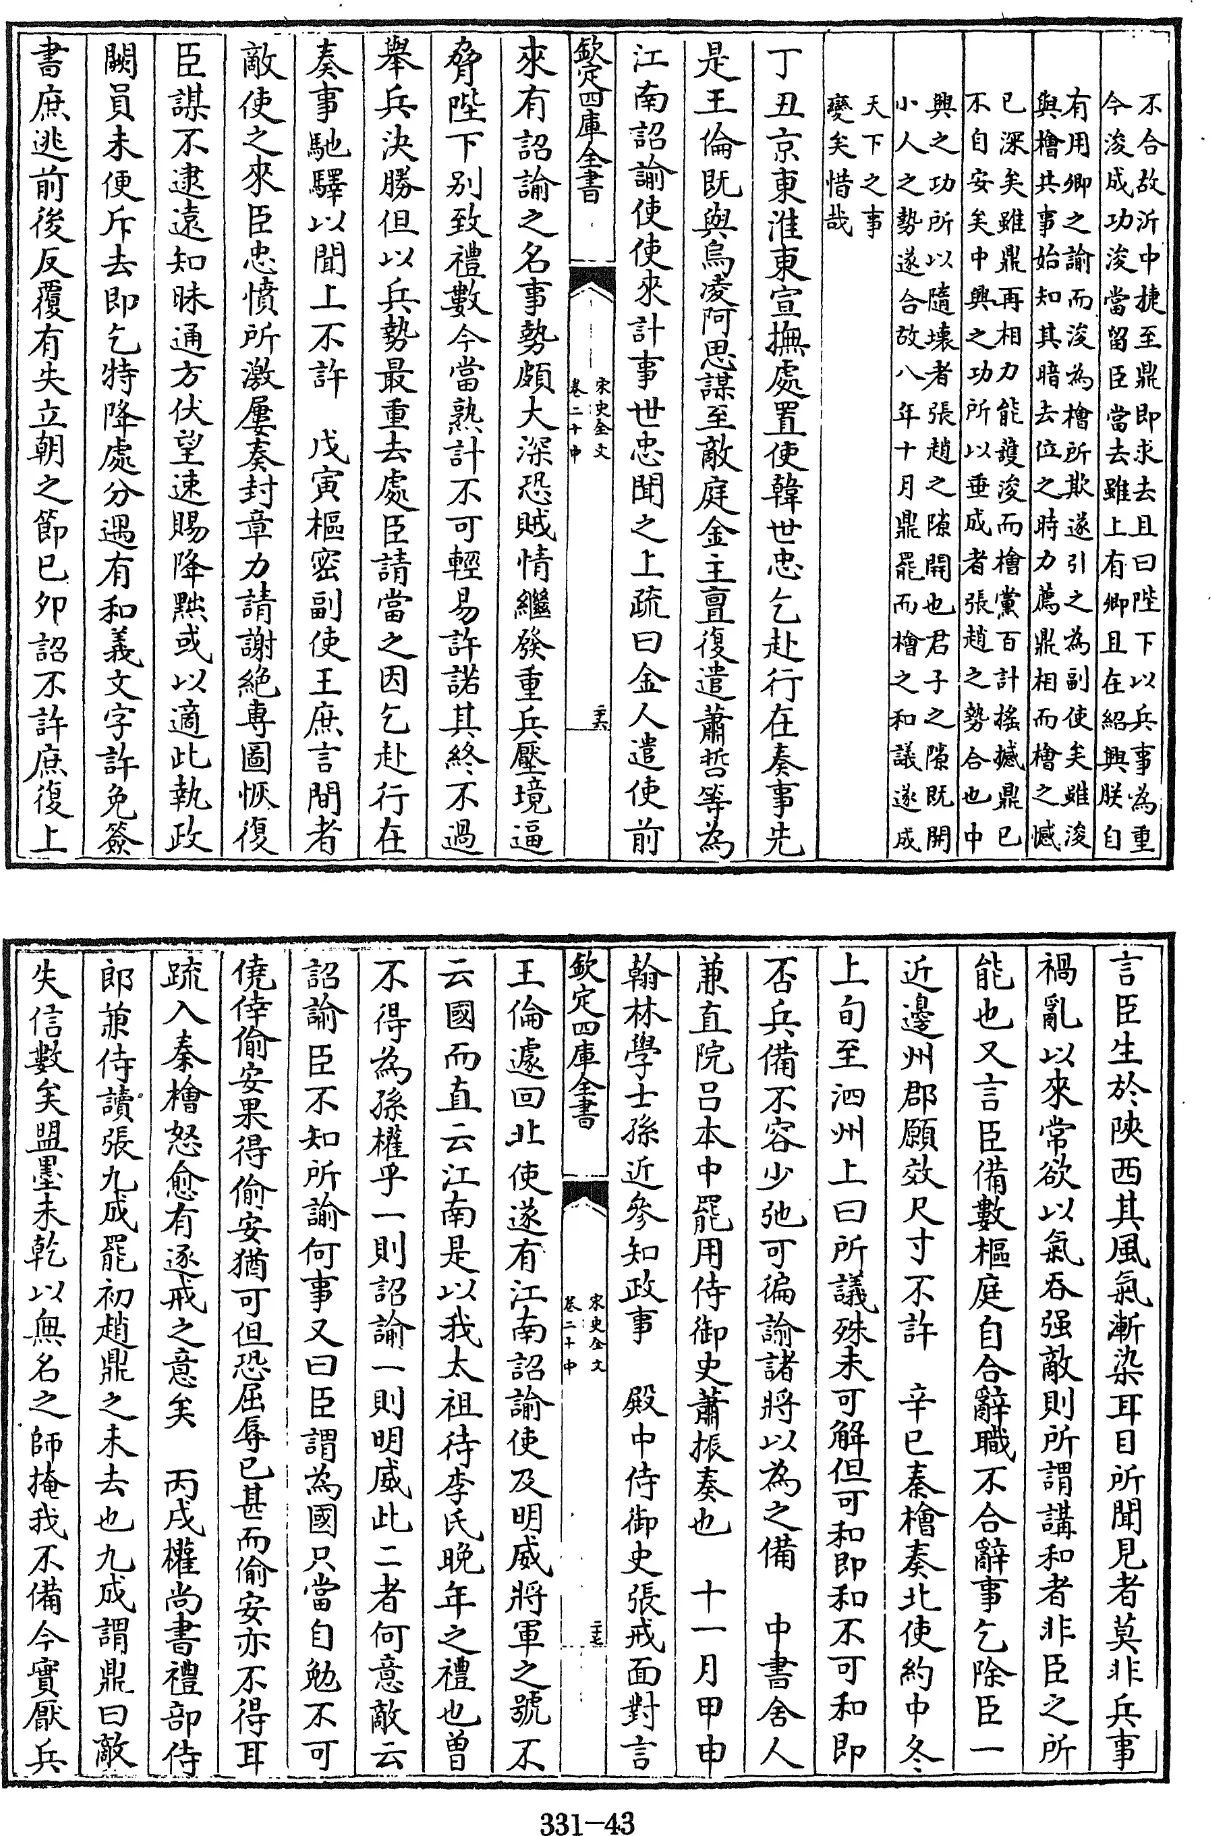 不合故沂中捷至鼎即求去且曰陛下以兵事為重
今浚成功浚當留臣當去雖上有卿且在紹興朕自
有用卿之諭而浚為檜所欺遂引之為副使矣雖浚
與檜共事始知其暗去位之時力薦鼎相而檜之憾
已深矣雖鼎再相力能護浚而檜黨百計搖撼鼎已
不自安矣中興之功所以垂成者張趙之勢合也中
興之功所以隨壞者張趙之隙開也君子之隙既開
小人之勢遂合故八年十月鼎罷而檜之和議遂成
天下之事
變矣惜哉
丁丑京東淮東宣撫處置使韓世忠乞赴行在奏事先
是王倫既與烏凌阿思謀至敵庭金主亶復遣蕭哲等為
江南詔諭使使來計事世忠聞之上疏曰金人遣使前
欽定四庫全書
宋史全文
卷二十中
三六
來有詔諭之名事勢頗大深恐賊情繼發重兵壓境逼
脅陛下別致禮數今當熟計不可輕易許諾其終不過
舉兵決勝但以兵勢最重去處臣請當之因乞赴行在
奏事馳驛以聞上不許 戊寅樞密副使王庶言間者
敵使之來臣忠憤所激屢奏封章力請謝絶專圖恢復
臣謀不逮遠知昧通方伏望速賜降黜或以適此執政
闕員未便斥去即乞特降處分遇有和義文字許免簽
書庶逃前後反覆有失立朝之節已夘詔不許庶復上
言臣生於陝西其風氣漸染耳目所聞見者莫非兵事
禍亂以來常欲以氣吞强敵則所謂講和者非臣之所
能也又言臣備數樞庭自合辭職不合辭事乞除臣一
近邊州郡願效尺寸不許 辛巳秦檜奏北使約中冬
上旬至泗州上曰所議殊未可解但可和即和不可和即
否兵備不容少弛可徧諭諸將以為之備 中書舍人
兼直院呂本中罷用侍御史蕭振奏也 十一月甲申
翰林學士孫近參知政事 殿中侍御史張戒面對言
欽定四庫全書
宋史全文
卷二十中
三七
王倫遽回北使遂有江南詔諭使及明威將軍之號不
云國而直云江南是以我太祖待李氏晚年之禮也曾
不得為孫權乎一則詔諭一則明威此二者何意敵云
詔諭臣不知所諭何事又曰臣謂為國只當自勉不可
僥倖偷安果得偷安猶可但恐屈辱已甚而偷安亦不得耳
疏入秦檜怒愈有逐戒之意矣 丙戌權尚書禮部侍
郎兼侍讀張九成罷初趙鼎之未去也九成謂鼎曰敵
失信數矣盟墨未乾以無名之師掩我不備今實厭兵
331-43